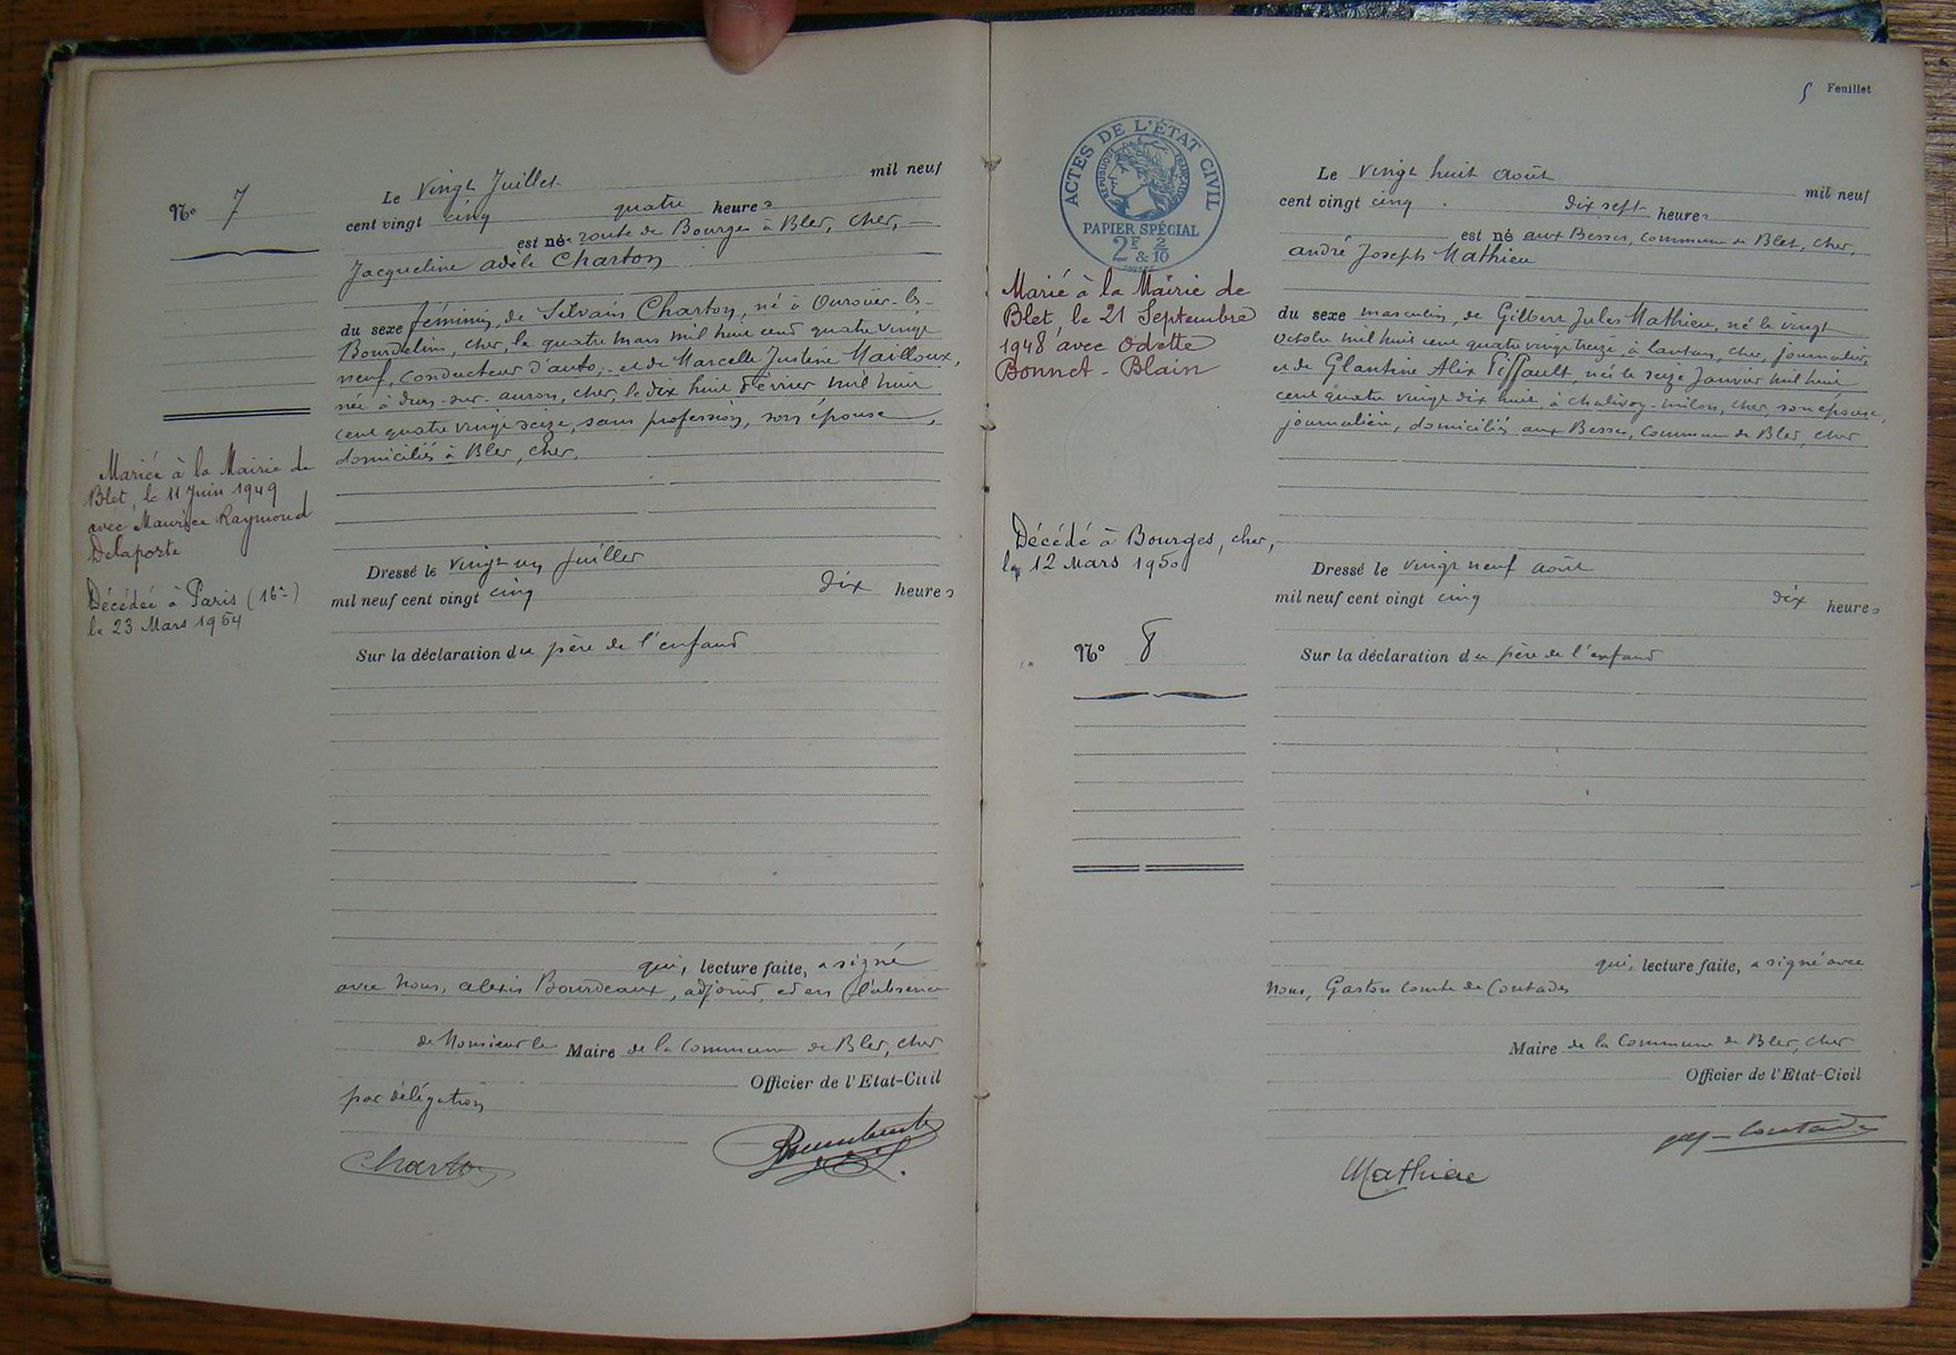 N° 7
Le vingt Juillet mil neuf
cent vingt cinq quatre heures
est née route de Bourges à Blet, Cher,
Jacqueline Adèle Charton
du sexe féminin, de Silvain Charton, né à Ourouër-les-
Bourdelins, Cher, le quatre mars mil huit cent quatre vingt
neuf, conducteur d'auto, et de Marcelle Justine Mailloux,
née à Dun-sur-Auron, Cher, le dix huit Février mil huit
cent quatre vingt seize, sans profession, son épouse,
domiciliés à Blet, Cher.
Mariée à la Mairie de
Blet, le 11 Juin 1949
avec Maurice Raymond
Delaporte
Décédée à Paris (16e)
le 23 Mars 1964
Dressé le vingt un Juillet
mil neuf cent vingt cinq dix heures
Sur la déclaration du père de l'enfant
qui, lecture faite, a signé
avec Nous, Alexis Bourdeaux, adjoint, et en l'absence
de Monsieur le Maire de la Commune de Blet, Cher
Officier de l'Etat-Civil
par délégation
Charton
5 Feuillet
ACTES DE L'ÉTAT CIVIL
RÉPUBLIQUE FRANÇAISE
PAPIER SPÉCIAL
2F & 2/10
Le vingt huit Août mil neuf
cent vingt cinq dix sept heures
est né aux Besses, Commune de Blet, Cher,
André Joseph Mathieu
du sexe masculin, de Gilbert Jules Mathieu, né le vingt
Octobre mil huit cent quatre vingt treize, à Lantan, Cher, journalier,
et de Glantine Alix Piffault, née le seize Janvier mil huit
cent quatre vingt dix huit, à Chalivoy-Milon, Cher, son épouse,
journalière, domiciliés aux Besses, Commune de Blet, Cher
Marié à la Mairie de
Blet, le 21 Septembre
1948 avec Odette
Bonnet-Blain
Décédé à Bourges, Cher,
le 12 Mars 1950
Dressé le vingt neuf Août
mil neuf cent vingt cinq dix heures
N° 8
Sur la déclaration du père de l'enfant
qui, lecture faite, a signé avec
Nous, Gaston Comte de Contades
Maire de la Commune de Blet, Cher
Officier de l'Etat-Civil
Contades
Mathieu